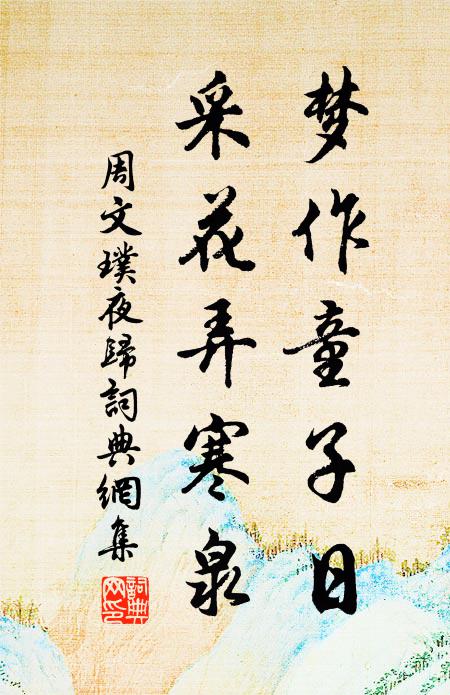 梦作童子日
采花弄寒泉
周文璞夜歸詞典網集
詞典網印